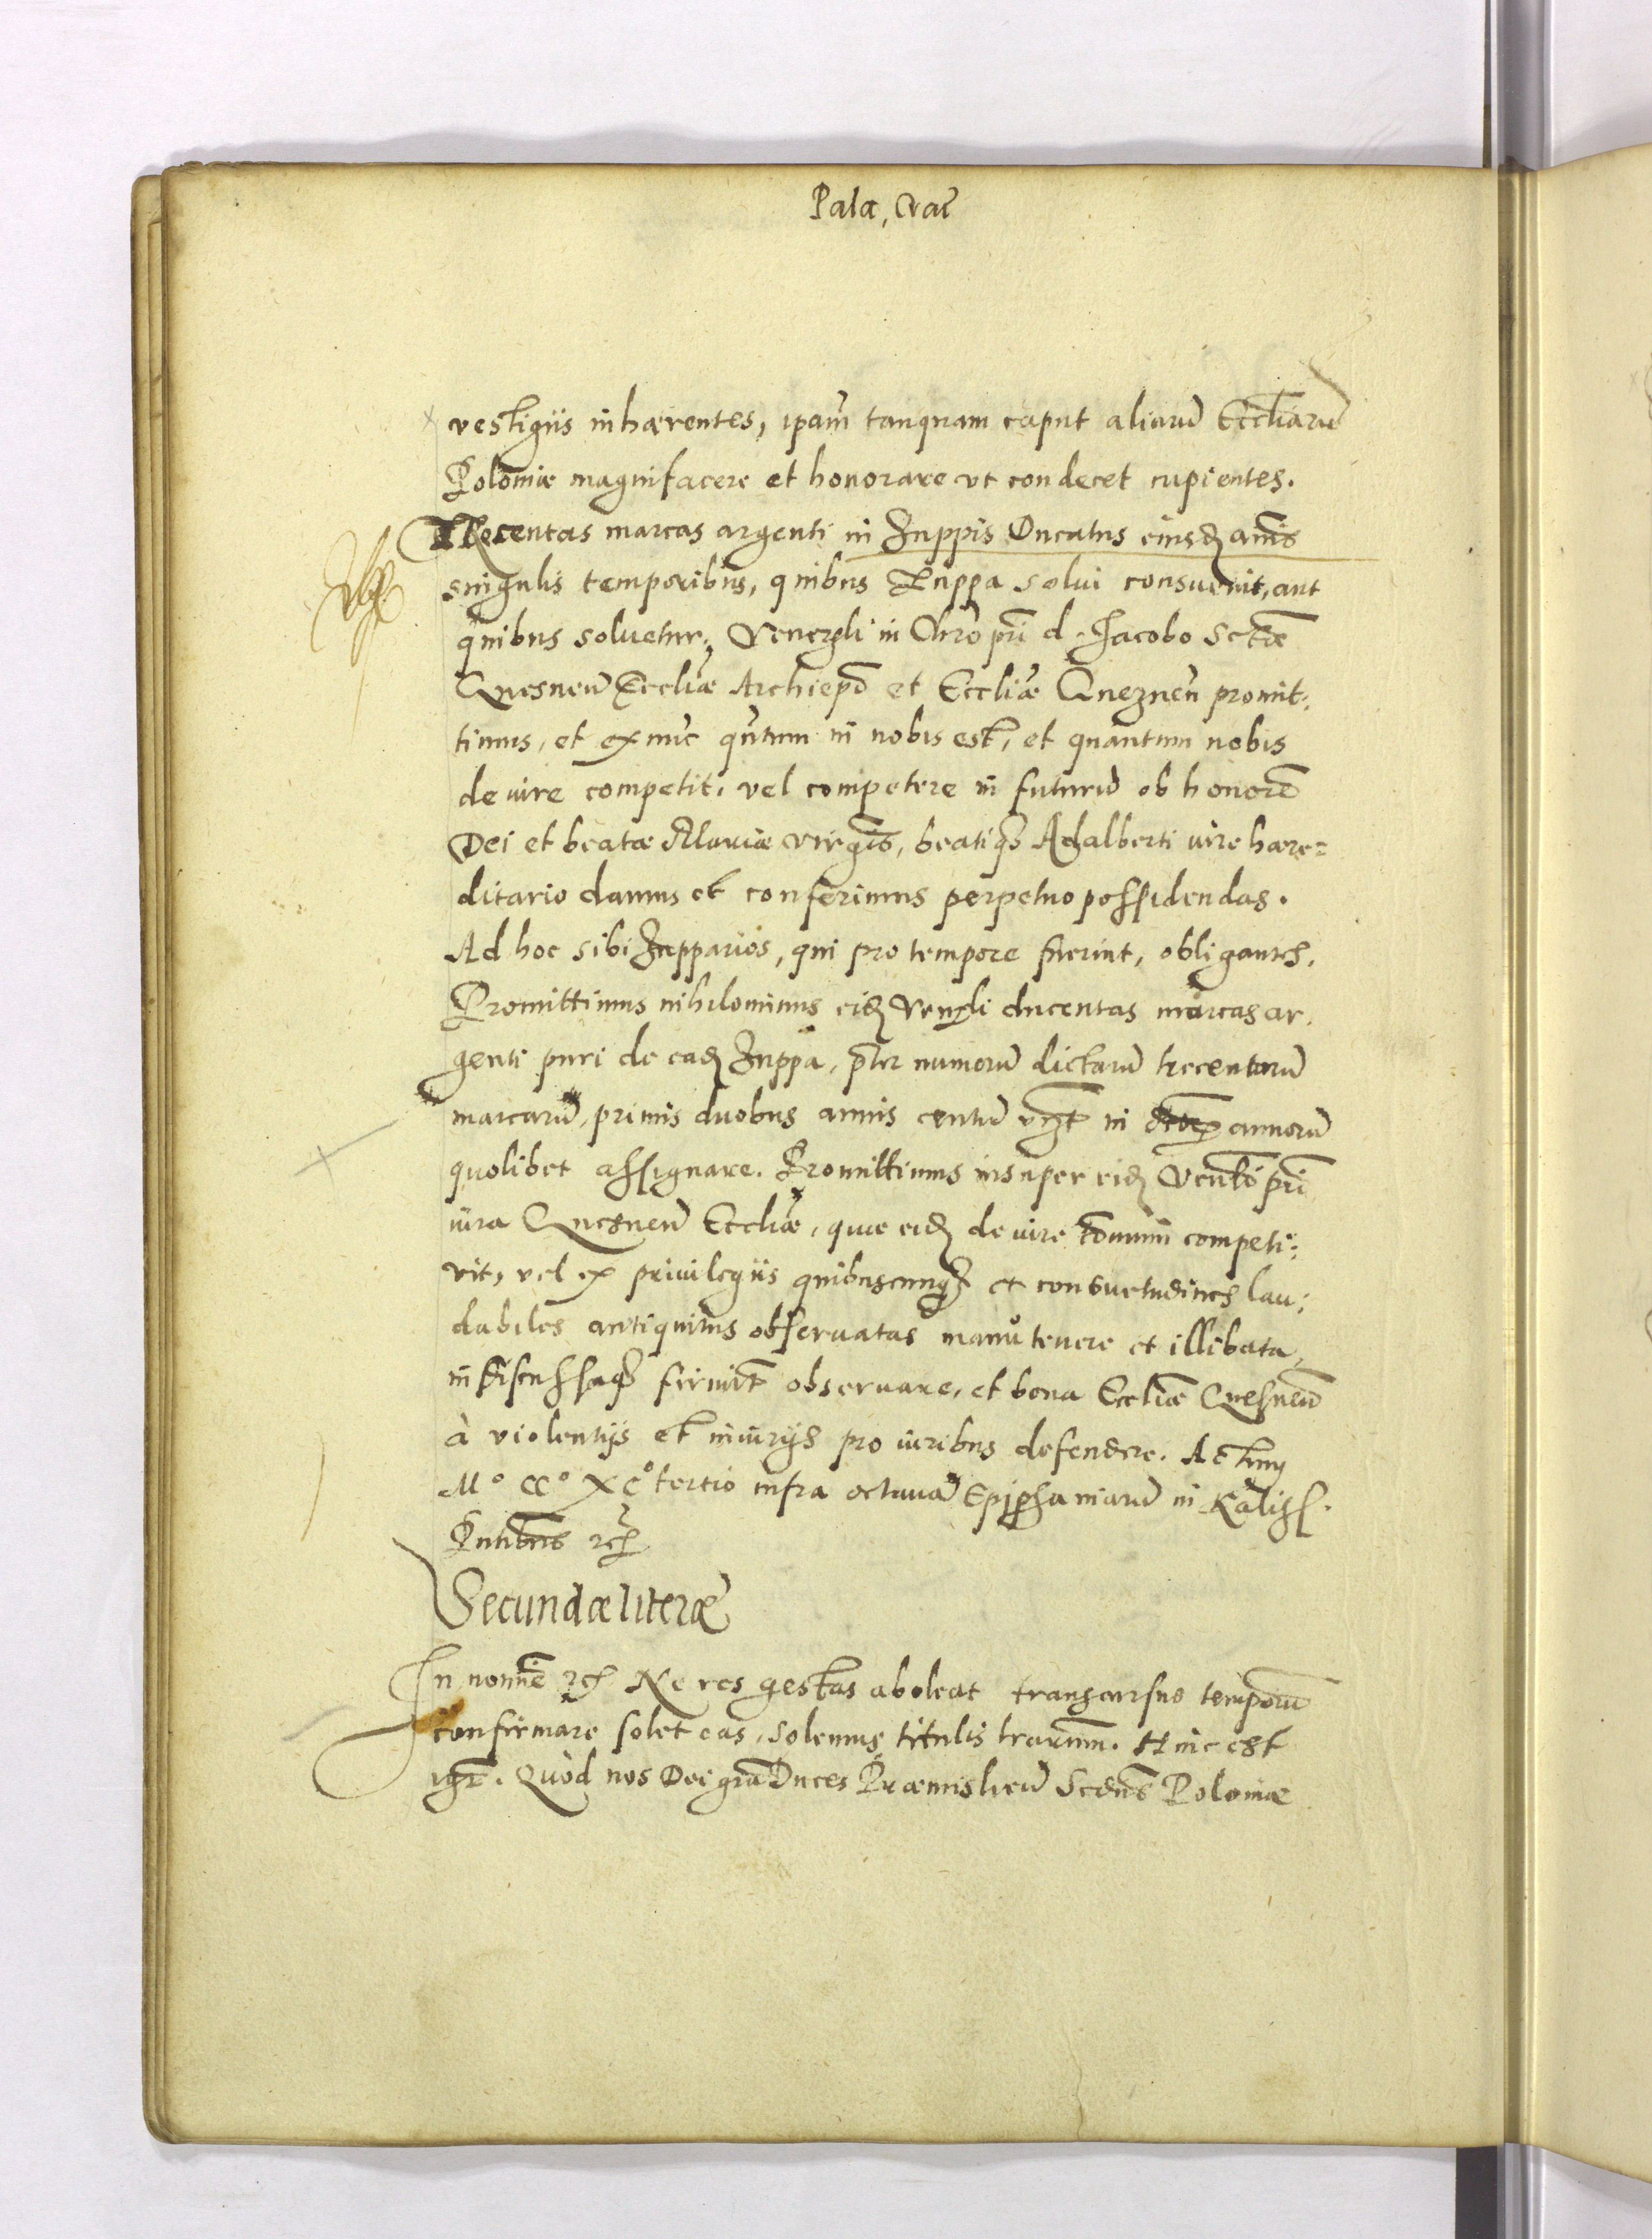 Pala, Crac̃
vestigiis inhærentes, ipam̃ tanquam caput aliarũ Eccliarũ
Poloniæ magnifacere et honorare vt condecet cupientes.
Trecentas marcas argenti in Zuppis Ducatus eiusdẽ annis
singulis temporibus, quibus Zuppa solui consuevit, aut
quibus soluetur, Venerãli in Chro prĩ d. Jacobo Sctæ
Gnesneñ Eccliæ Archiepõ et Eccliæ Gnezneñ promit:
timus, et ex nũc quñtum in nobis est, et quantum nobis
de iure competit, vel competere in futurũ ob honorẽ
Dei et beatæ Mariæ virginis, beatiqȝ Adalberti iure hære=
ditario damus et conferimus perpetuo possidendas.
Ad hoc sibi Zupparios, qui pro tempore fuerint, obligantes.
Promittimus nihilominus eidẽ Venrãli ducentas marcas ar,
genti puri de eadẽ Zuppa, ptẽr numerũ dictarũ trecentarũ
marcarũ, primis duobus annis centũ vzt̃ in annorũ
quolibet assignare. Promittimus insuper eidẽ Venlĩ prĩ
iura Gnesneñ Eccliæ, quæ eidẽ de iure com̃uni competi:
vit, vel ex priuilegiis quibuscunqȝ et consuetudines lau:
dabiles antiquitus obseruatas manũ tenere et illibata,
indiscussaqȝ firmit̃ obseruare, et bona Eccliæ Gnesneñ
à violentijs et iniurijs pro iuribus defendere. Actum
Mº CCº XCº tertio infra octauã Epiphaniarũ in Kalisz.
Pntibus ꝛc̃
Secundæ literæ
In nomine ꝛc̃ Ne res gestas aboleat transcursus temporũ
confirmare solet eas, solemnis titulis lrarum. Hinc est
igr̃. Quòd nos Dei grã Duces Præmisliciũ Scdũs Poloniæ